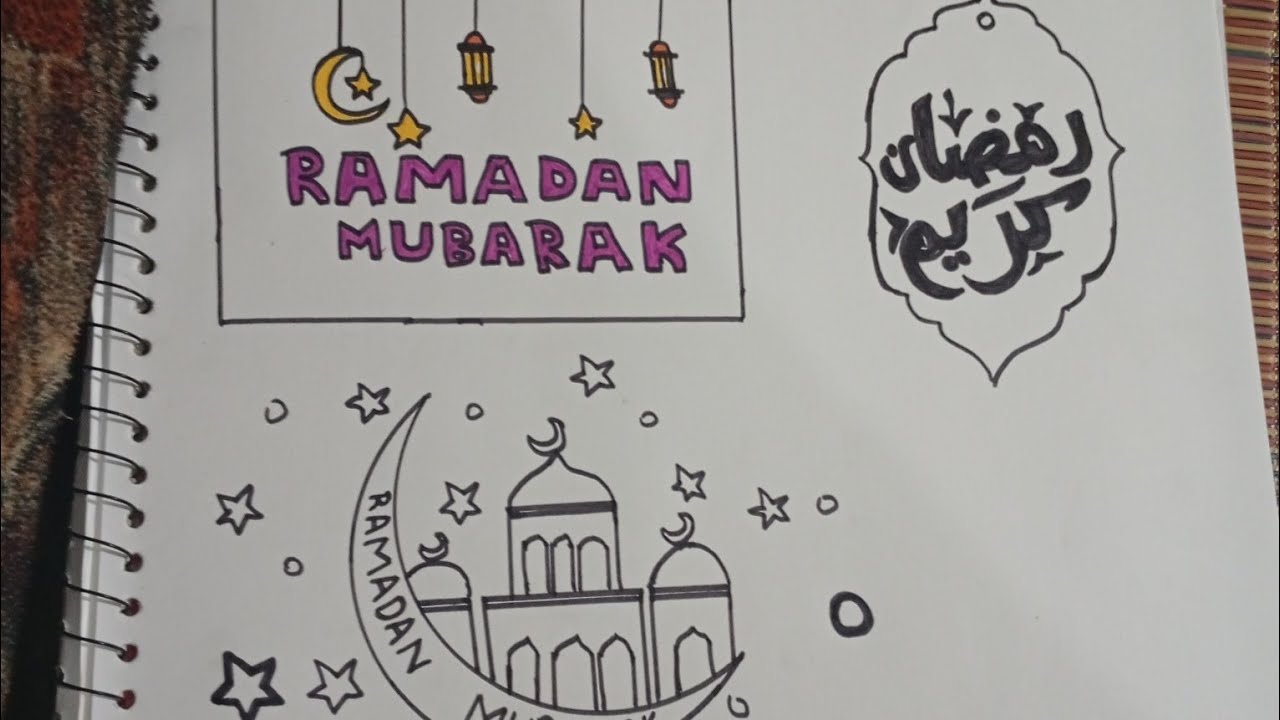 RAMADAN
MUBARAK
رمضان
كريم
RAMADAN